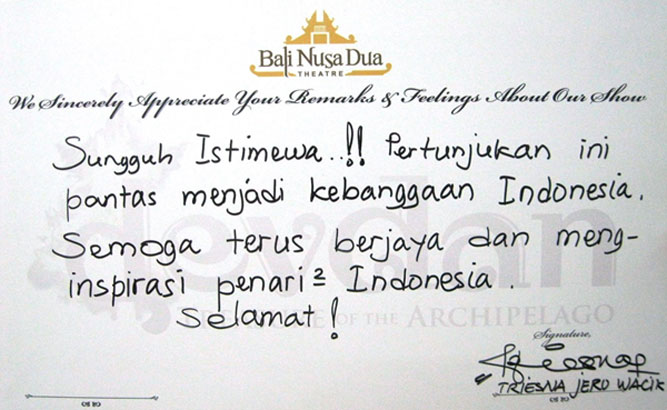 Bali Nusa Dua
THEATRE
We Sincerely Appreciate Your Remarks & Feelings About Our Show
Sungguh Istimewa..!! Pertunjukan ini
pantas menjadi kebanggaan Indonesia.
Semoga terus berjaya dan meng-
inspirasi penari² Indonesia.
Selamat!
devdan
TREASURE OF THE ARCHIPELAGO
Signature,
TRIESNA JERO WACIK